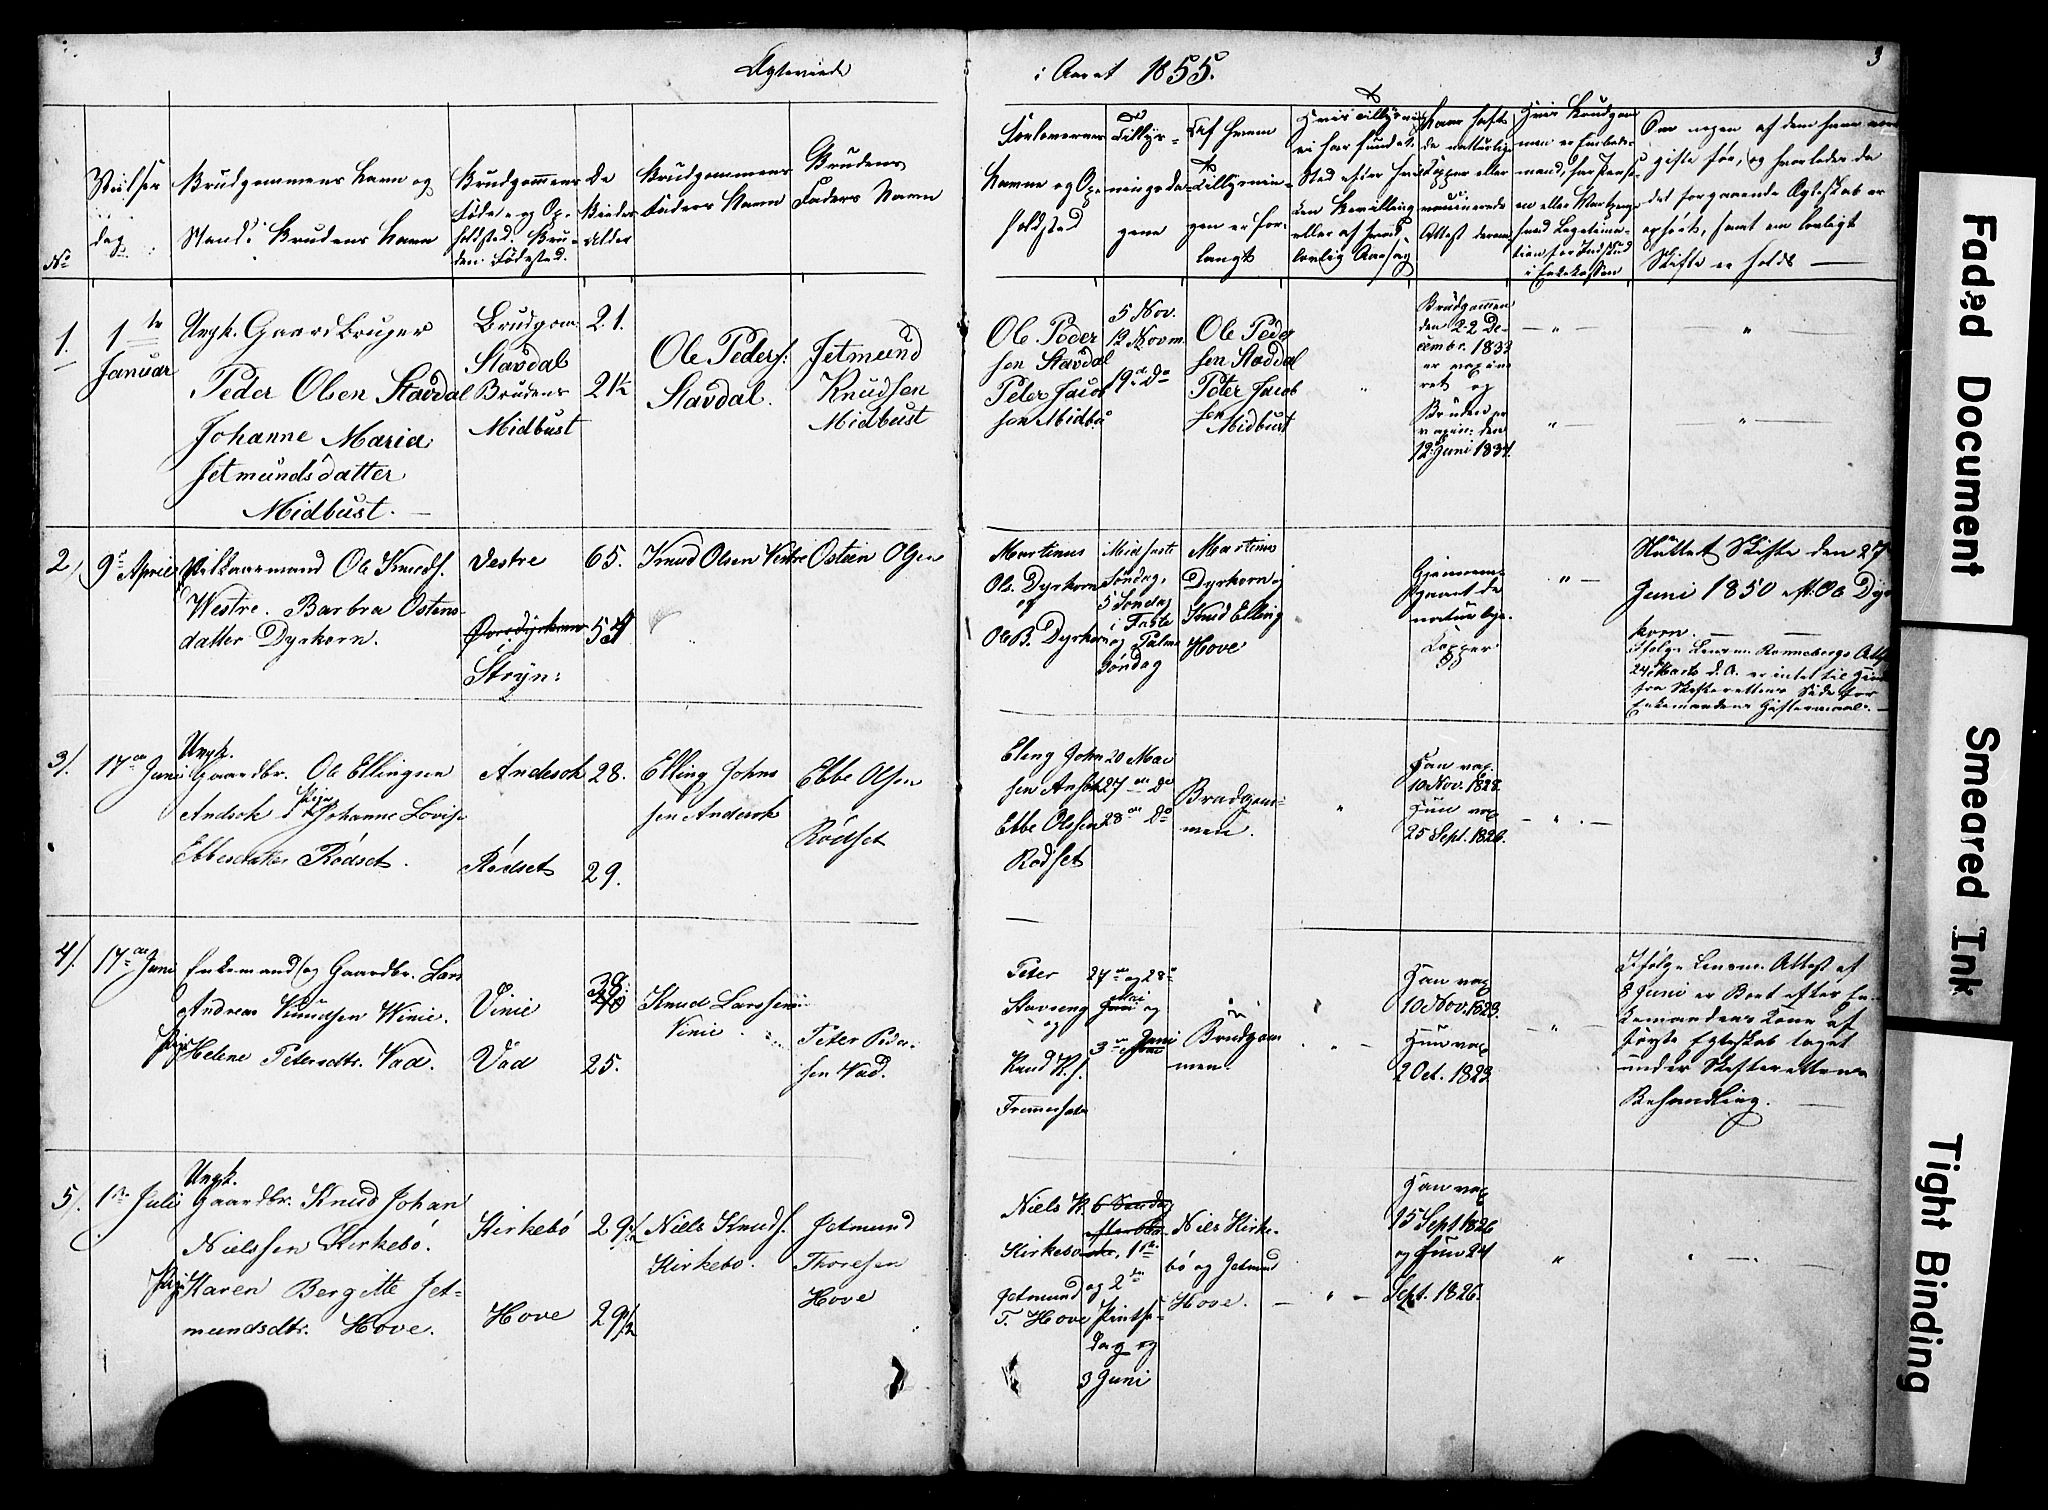 Ægteviede
i Aaret 1855.
3
No
Vielses
dag
Brudgommens Navn og
Stand: Brudens Navn
Brudgommens
Føde- og Op-
holdsted. Bru-
dens Fødested.
De
Viedes
Alder
Brudgommens
Faders Navn
Brudens
Faders Navn
Forlovernes
Navne og Op-
holdsted
Tillys-
ningsda-
gene
Af hvem
Tillysnin-
gen er for-
langt
Om nogen af dem have været
gifte før, og hvorledes da
det foregaaende Ægteskab er
ophört, samt om lovligt
Skifte er holdt
1.
1te
Januar
Ungk. Gaardbruger
Peder Olsen Stavdal
Johanne Maria
Jetmundsdatter
Midbust.
Brudgom:
Stavdal
Brudens
Midbust
21.
21½
Ole Peders:
Stavdal.
Jetmund
Knudsen
Midbust
Ole Peder
sen Stavdal
Peter Jacob
sen Midbu
5 Nov.
12 Novm.
19de Do
Ole Peder
sen Stavdal
Peter Jacob
sen
Midbust
Brudgommen
den 22 De-
cembr. 1833
er vaccine-
ret og
Bruden er
vaccin: den
12 Juni 1834.
2
9de April
Vilkaarmand Ole Knuds.
Westre. Barbra Ostens
datter Dyrkorn.
Vestre
Stryn:
65.
54
Knud Olsen Vestre
Osten Olsen
Martinus
Ols. Dyrkorn
og
Ole B. Dyrkorn
Midfaste
Søndag,
5 Søndag
i Faste
og Palme
Søndag
Martinus
Dyrkorn og
Knud Elling
Hove
Gjennem-
gaaet de
naturlige
Kopper
Sluttet Skifte den 27
Juni 1850 eft. Ole Dyr
korn.
Ifølge Lensm. Rønnebergs Attest
24 Marts d. A. er intet til Hinder
fra Skifterettens Side for
Enkemandens Giftermaal.
3/.
17de Juni
Ungk.
Gaardbr. Ole Ellingsen
Andsok Pige Johanne Lovise
Ebbesdatter Rødset.
Andesok
Rødset
28.
29.
Elling Johns
sen Andesok
Ebbe Olsen
Rødset
Eling John
sen Ansok
Ebbe Olssen
Rødset
20 Mai
27de Do
28de Do
Brudgom-
men.
Han vac.
10 Nov. 1828.
Hun vac
25 Sept. 1826.
4/.
17de Juni
Enkemand og Gaardbr. Lars
Andreas Knudsen Winie.
Pige Helene Petersdtr. Vad.
Vinie
Vad
38.
25.
Knud Larssen
Vinie
Peter Peder-
sen Vad.
Peter
Stavseng
og
Knud K.s.
27de og 28de
Mai og
3de Juni
Brudgom
men.
Han vac
10 Nov. 1823.
Hun vac
2 Oct. 1829
Ifølge Lensm. Attest af
8 Juni er Boet efter En-
kemandens Kone af
første Egteskab taget
under Skifterettens
Behandling.
5/.
1ste Juli
Ungk.
Gaardbr. Knud Johan
Nielssen Kirkebø.
Pige Karen Bergitte Jet-
mundsdtr. Hove.
Kirkebø
Hove
29½
29½
Niels Knuds.
Kirkebø.
Jetmund
Thoresen
Hove
Niels K.
Kirkebø
Jetmund
T. Hove
1ste
og 2den
Pintse-
dag og
3 Juni
Niels Kirke-
bø og Jetmund
Hove.
Han vac
15 Sept 1826
og hun 24
Sept. 1826.
Faded Document
Smeared Ink
Tight Binding